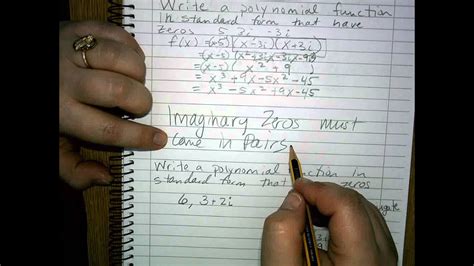 Write a polynomial function
in standard form that have
zeros 5, 3i, -3i
f(x) = (x-5)(x-3i)(x+3i)
=(x-5)(x²+3ix-3ix-9i²)
=(x-5)(x²+9)
=x³+9x-5x²-45
=x³-5x²+9x-45
Imaginary Zeros must
come in Pairs
Write a polynomial function in
standard form that zeros
6, 3+2i